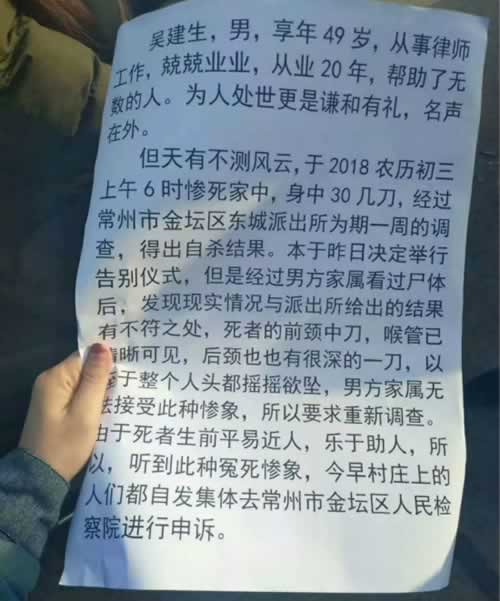 吴建生，男，享年 49 岁，从事律师
工作，兢兢业业，从业 20 年，帮助了无
数的人。为人处世更是谦和有礼，名声
在外。
但天有不测风云，于 2018 农历初三
上午 6 时惨死家中，身中 30 几刀，经过
常州市金坛区东城派出所为期一周的调
查，得出自杀结果。本于昨日决定举行
告别仪式，但是经过男方家属看过尸体
后，发现现实情况与派出所给出的结果
有不符之处，死者的前颈中刀，喉管已
清晰可见，后颈也也有很深的一刀，以
至于整个人头都摇摇欲坠，男方家属无
法接受此种惨象，所以要求重新调查。
由于死者生前平易近人，乐于助人，所
以，听到此种冤死惨象，今早村庄上的
人们都自发集体去常州市金坛区人民检
察院进行申诉。